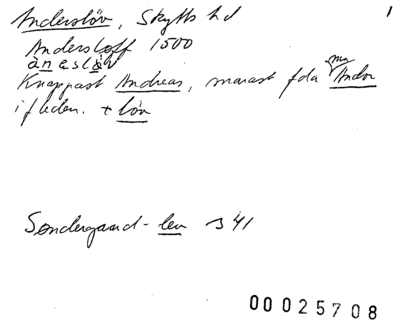 Anderslöv, Skytts hd 1
Andersloff 1500
àneslöv
Knappast Andreas, snarast fda mn Andor
i f leden. + löv
Søndergaard - lev s 41
00025708